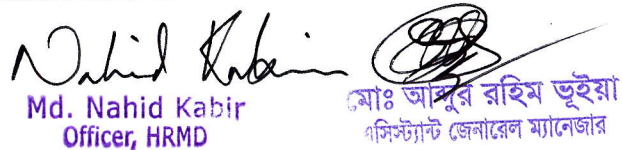 Nahid Kabir
Md. Nahid Kabir
Officer, HRMD
মোঃ আব্দুর রহিম ভূইয়া
এসিস্ট্যান্ট জেনারেল ম্যানেজার